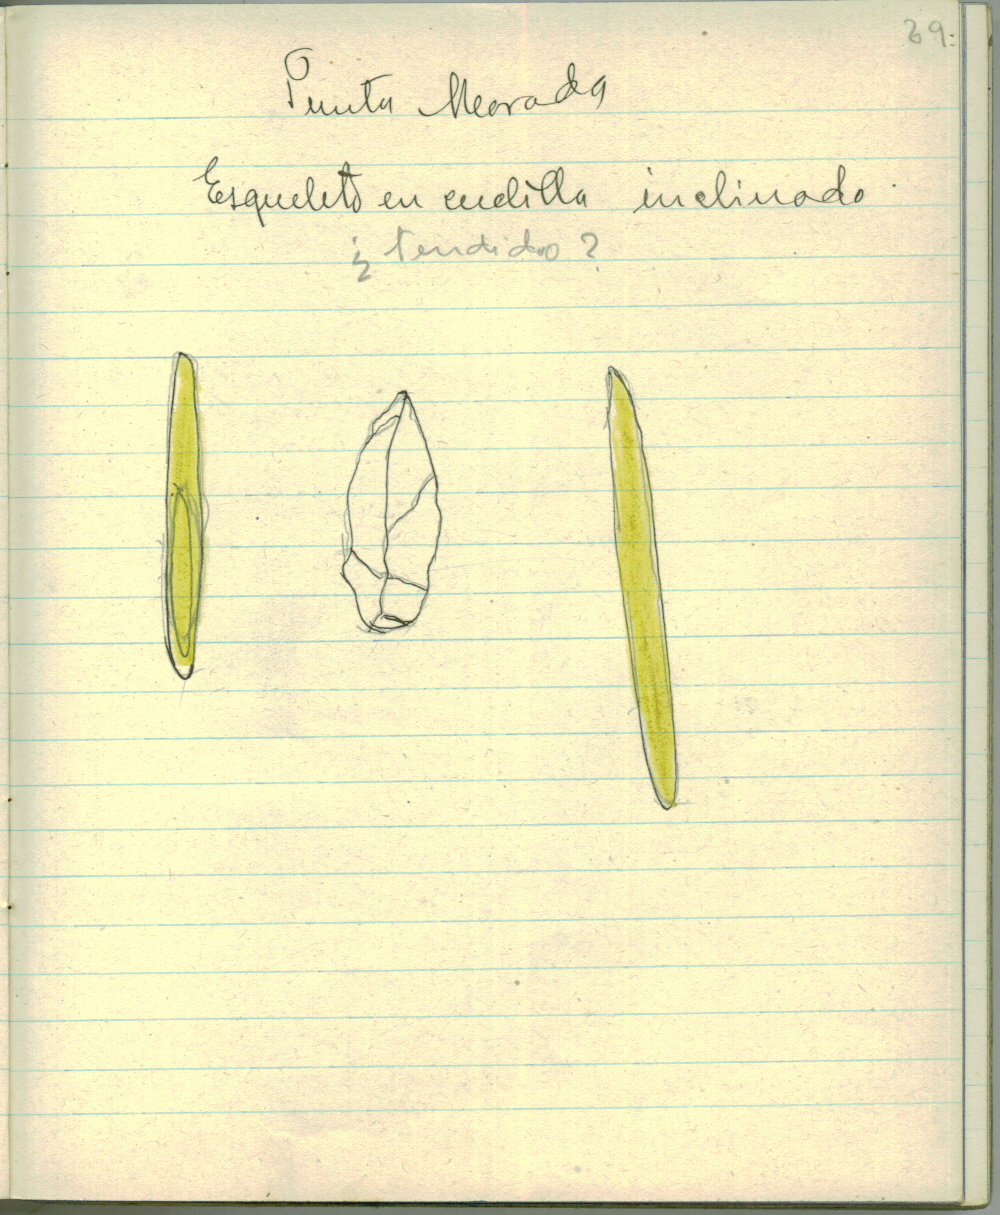 29.
Punta Morada
Esqueleto en cuclilla inclinado
¿ tendido ?